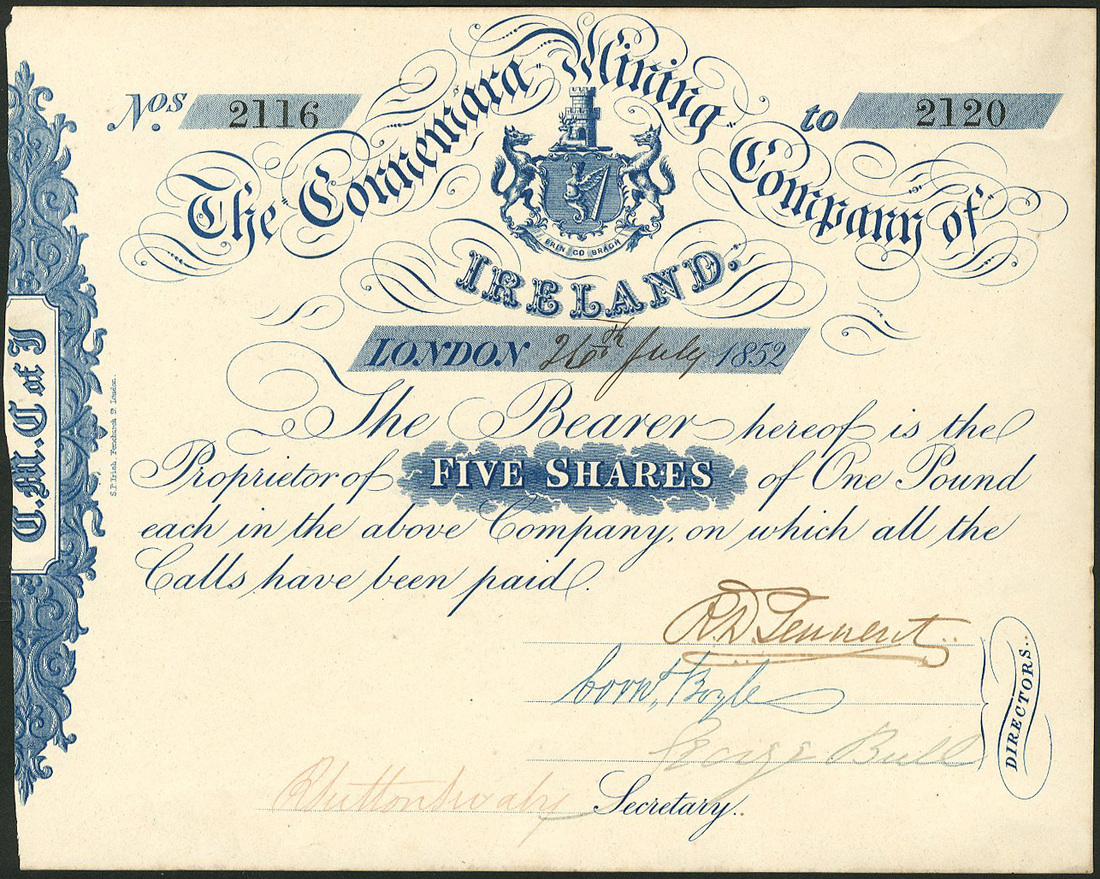 Nos 2116 to 2120
The Connemara Mining Company of
ERIN GO BRAGH
IRELAND.
LONDON 26th July 1852
The Bearer hereof is the
Proprietor of FIVE SHARES of One Pound
each in the above Company, on which all the
Calls have been paid.
C.M.C of I
S.P. Irish, Fenchurch St. London.
R.D. Tennent
Boyle
George Bull
DIRECTORS.
Secretary.